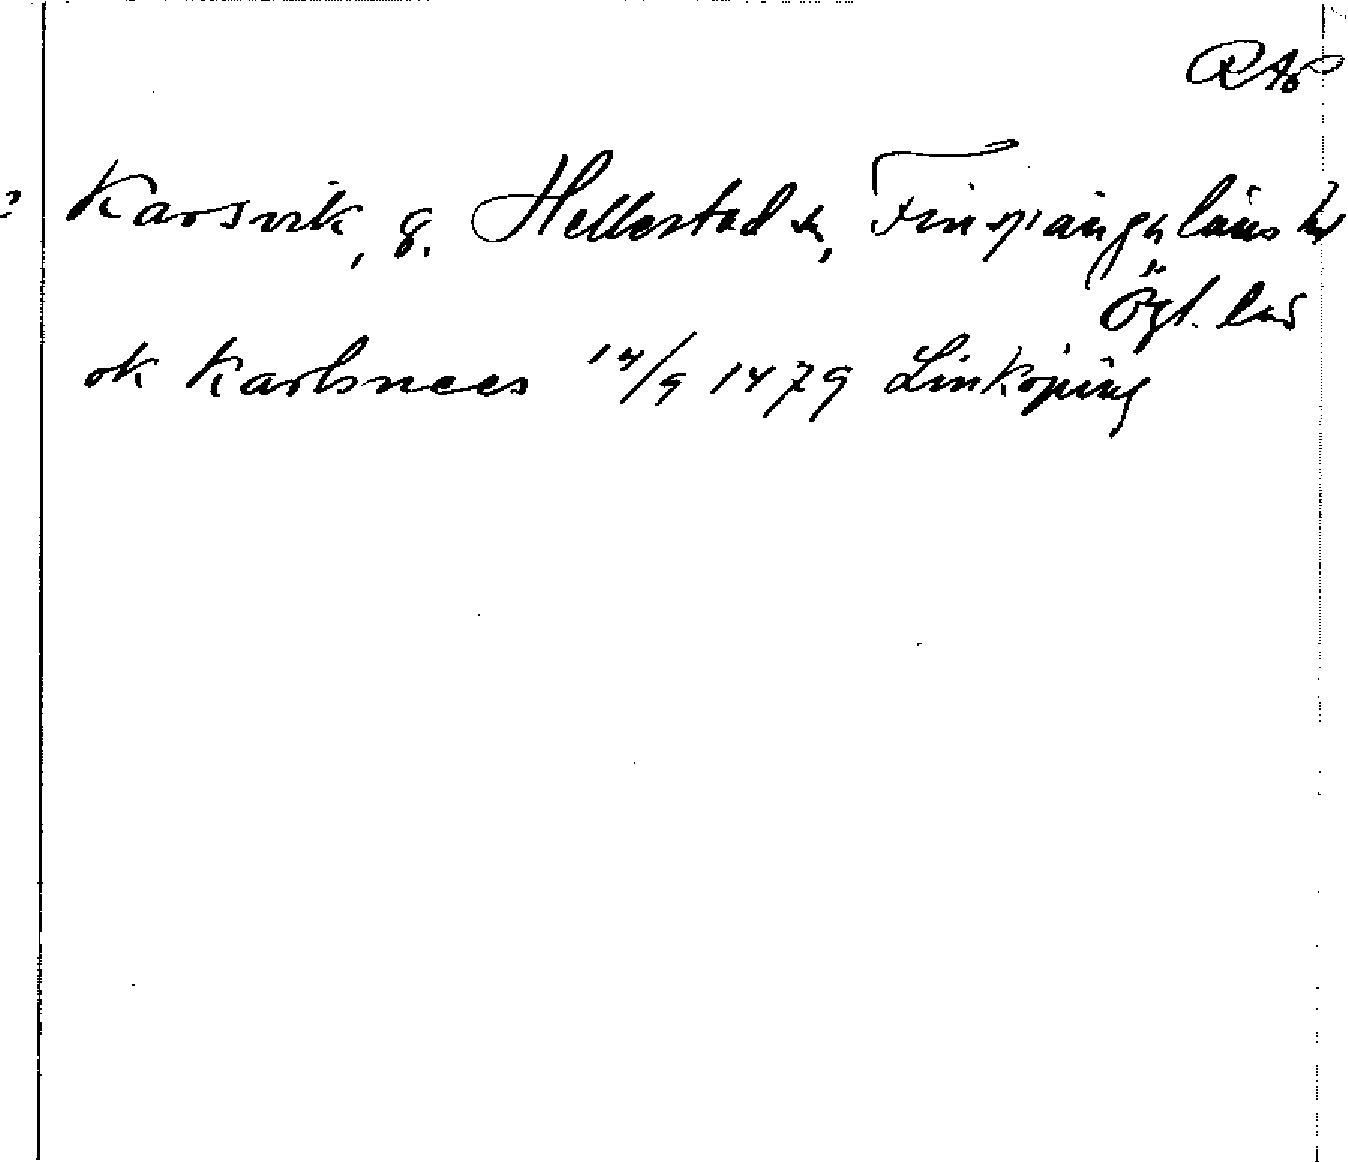 RAp
? Karsvik, g. Hellestad sn, Finspångaläns hd
Ögl. län
ok Karlsnees 14/9 1479 Linköping